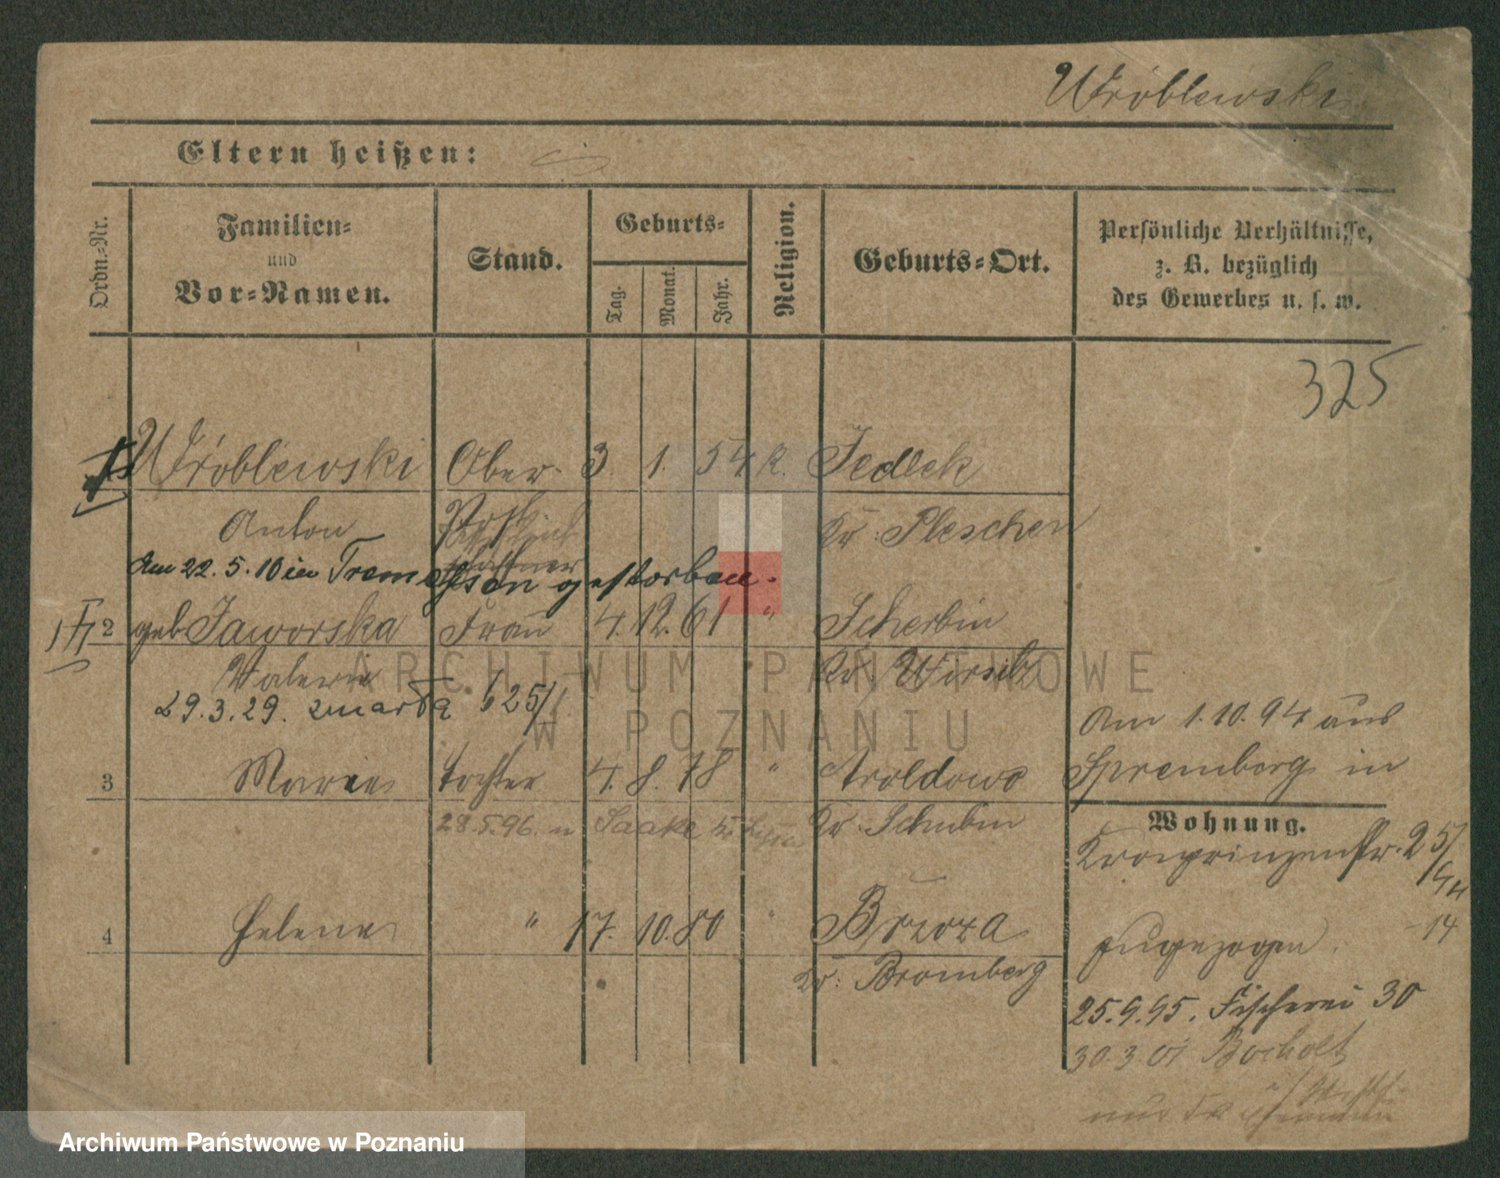 Wróblewski
Eltern heißen:
Ordn.-Nr.
Familien- und Vor-Namen.
Stand.
Geburts-
Tag. Monat. Jahr.
Religion.
Geburts-Ort.
Persönliche Verhältnisse,
z. B. bezüglich
des Gewerbes u. s. w.
325
Wróblewski Ober- 3. 1. 54 k. Jedlek
Anton Post Kr. Pleschen
Am 22. 5. 10 in Tremessen gestorben.
2 geb Jaworska Frau 4. 12. 61 " Scherbin
Valerie Kr. Wirsitz
29.3.29. zmarła
Am 1.10.94 aus
3 Marie Tochter 4. 8. 78 " Aroldowo Spremberg in
28.5.96. n Saake Kr. Schubin
Wohnung.
Kronprinzenstr. 25
4 Helene " 17. 10. 80 " Brzoza
zugezogen. 14
Kr. Bromberg
25.9.95. Fischerei 30
30.3.01 Bocholt
ARCHIWUM PAŃSTWOWE
W POZNANIU
Archiwum Państwowe w Poznaniu